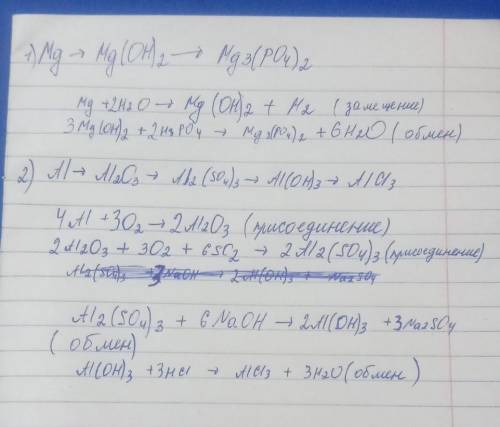 1) Mg → Mg(OH)2 → Mg3(PO4)2
Mg + 2H2O → Mg(OH)2 + H2 (замещение)
3Mg(OH)2 + 2H3PO4 → Mg3(PO4)2 + 6H2O (обмен)
2) Al → Al2O3 → Al2(SO4)3 → Al(OH)3 → AlCl3
4Al + 3O2 → 2Al2O3 (присоединение)
2Al2O3 + 3O2 + 6SO2 → 2Al2(SO4)3 (присоединение)
Al2(SO4)3 + 3NaOH → 2Al(OH)3 + Na2SO4
Al2(SO4)3 + 6NaOH → 2Al(OH)3 + 3Na2SO4
(обмен)
Al(OH)3 + 3HCl → AlCl3 + 3H2O (обмен)